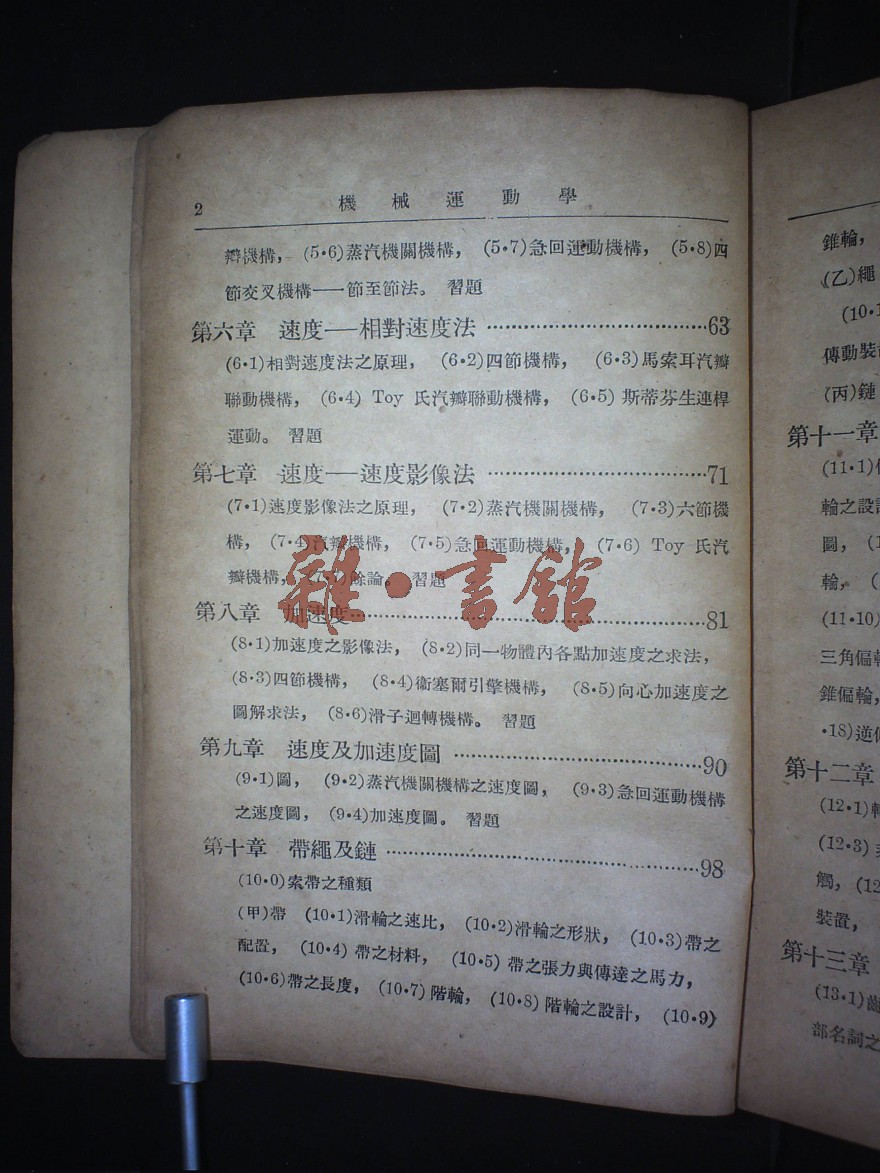 2 機械運動學
瓣機構， (5·6)蒸汽機關機構， (5·7)急回運動機構， (5·8)四
節交叉機構——節至節法。 習題
第六章 速度——相對速度法 ……………………………63
(6·1)相對速度法之原理， (6·2)四節機構， (6·3)馬索耳汽瓣
聯動機構， (6·4) Toy 氏汽瓣聯動機構， (6·5) 斯蒂芬生連桿
運動。 習題
第七章 速度——速度影像法 ……………………………71
(7·1)速度影像法之原理， (7·2)蒸汽機關機構， (7·3)六節機
構， (7·4)汽瓣機構， (7·5)急回運動機構， (7·6) Toy 氏汽
瓣機構， (7·7)餘論。 習題
雜·書館
第八章 加速度……………………………………………81
(8·1)加速度之影像法， (8·2)同一物體內各點加速度之求法，
(8·3)四節機構， (8·4)衞塞爾引擎機構， (8·5)向心加速度之
圖解求法， (8·6)滑子迴轉機構。 習題
第九章 速度及加速度圖 …………………………………90
(9·1)圖， (9·2)蒸汽機關機構之速度圖， (9·3)急回運動機構
之速度圖， (9·4)加速度圖。 習題
第十章 帶繩及鏈 …………………………………………98
(10·0)索帶之種類
(甲)帶 (10·1)滑輪之速比， (10·2)滑輪之形狀， (10·3)帶之
配置， (10·4) 帶之材料， (10·5) 帶之張力與傳達之馬力，
(10·6)帶之長度， (10·7)階輪， (10·8)階輪之設計， (10·9)
錐輪，
(乙)繩
(10·1
傳動裝
(丙)鏈
第十一章
(11·1)
輪之設計
圖， (1
輪， (
(11·10)
三角偏輪
錐偏輪，
·18)逆
第十二章
(12·1)
(12·3)
觸， (12
裝置，
第十三章
(13·1)齒
部名詞之